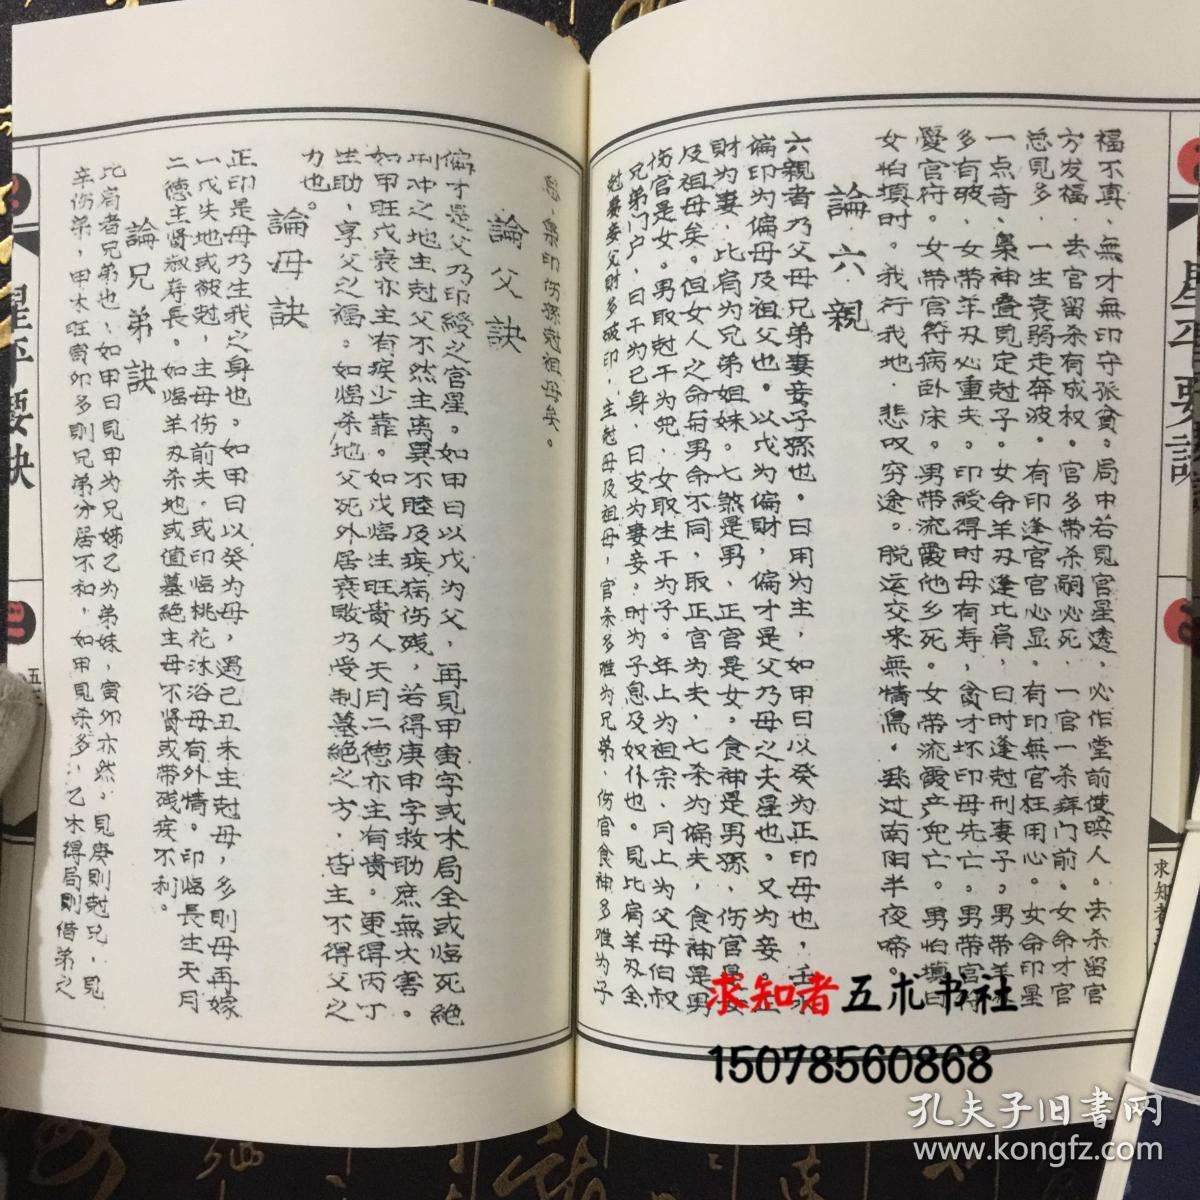 福不真，無才無印守張貧。局中若見官星透，必作堂前使喚人。去杀留官
方发福，去官留杀有成权。官多带杀嗣必死，一官一杀拜门前。女命才官
总見多，一生衰弱走奔波。有印逢官官必显，有印無官枉用心。女命印星
一点奇，枭神疊見定尅子。女命羊刃逢比肩，日时逢尅刑妻子。男带羊
多有破，女带羊刃必重夫。印綬得时母有寿，贪才坏印母先亡。男带官符
愛官府，女带官符病卧床。男带流霞他乡死。女带流霞产兕亡。男怕填日
女怕填时。我行我地，悲叹穷途。脱运交来無情焉。過南阳半夜啼。
論六親
六親者乃父母兄弟妻妾子孫也。日用为主，如甲日以癸为正印母也，壬水
偏印为偏母及祖父也。以戊为偏財，偏才是父乃母之夫星也。又为妾。
財为妻，比肩为兄弟姐妹。七煞是男，正官是女。食神是男孫，伤官是
及祖母矣。但女人之命与男命不同，取正官为夫，七杀为偏夫，食神是男
伤官是女。男取尅干为兕，女取生干为子。年上为祖宗，月上为父母伯叔
兄弟门户，日干为己身，日支为妻妾，时为子息及奴仆也。見比肩羊刃全
尅妻妾父財多破印，主尅母及祖母，官杀多难为兄弟，伤官食神多难为子
息，枭印伤孫尅祖母矣。
論父訣
偏才是父乃印綬之官星。如甲日以戊为父，再見甲寅字或木局全或临死絶
刑冲之地主尅父不然主离異不睦及疾病伤残，若得庚申字救助庶無大害。
如甲旺戊衰亦主有疾少靠。如戊临生旺貴人天月二德亦主有貴。更得丙丁
生助，享父之福。如临杀地父死外居衰敗乃受制墓絶之方，皆主不得父之
力也。
論母訣
正印是母乃生我之身也。如甲日以癸为母，遇己丑未主尅母，多則母再嫁
一戊失地或被尅，主母伤前夫，或印临桃花沐浴母有外情。印临長生天月
二德主賢淑寿長。如临羊刃杀地或值墓絶主母不賢或带残疾不利。
論兄弟訣
比肩者兄弟也，如甲日見甲为兄姊乙为弟妹，寅卯亦然。見庚則尅兄，見
辛伤弟，甲木旺寅卯多則兄弟分居不和，如甲見杀多，乙木得局則借弟之
星平要訣
三
求知者五术书社
15078560868
孔夫子旧書网
www.kongfz.com